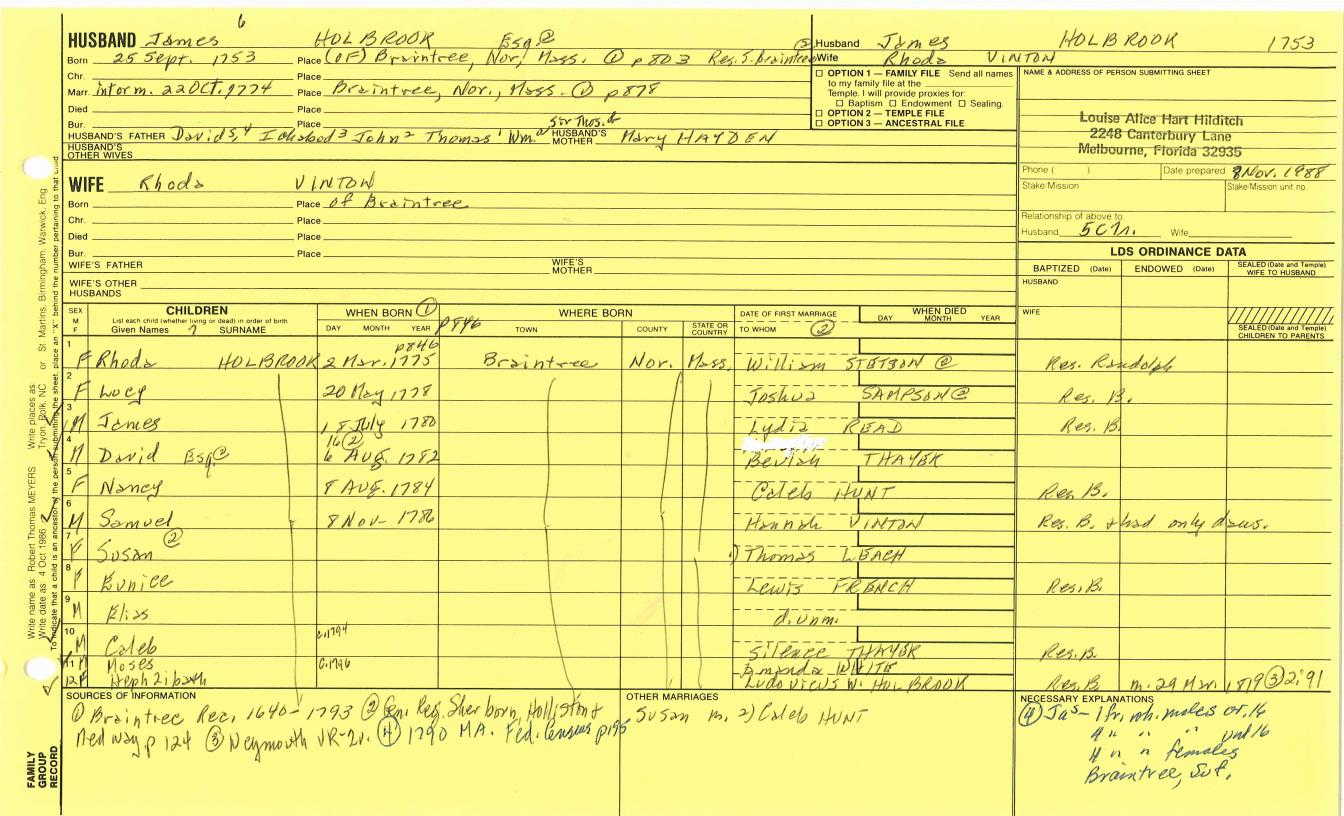 6
HUSBAND James HOLBROOK Esq②
Born 25 Sept. 1753 Place (OF) Braintree, Nor, Mass. ① p803 Res. S. Braintree
Marr. interm. 22 OCT. 1774 Place Braintree, Nor., Mass. ① p878
Chr. Place
Died Place
Bur. Place
HUSBAND'S FATHER David 5,4 Ichabod 3 John 2 Thomas 1 Wm. HUSBAND'S MOTHER Mary HAYDEN
HUSBAND'S OTHER WIVES
WIFE Rhoda VINTON
Born Place of Braintree
Chr. Place
Died Place
Bur. Place
WIFE'S FATHER WIFE'S MOTHER
WIFE'S OTHER HUSBANDS
Husband James HOLBROOK 1753
Wife Rhoda VINTON
☐ OPTION 1 — FAMILY FILE Send all names
to my family file at the
Temple. I will provide proxies for:
☐ Baptism ☐ Endowment ☐ Sealing.
☐ OPTION 2 — TEMPLE FILE
☐ OPTION 3 — ANCESTRAL FILE
NAME & ADDRESS OF PERSON SUBMITTING SHEET
Louise Alice Hart Hilditch
2248 Canterbury Lane
Melbourne, Florida 32935
Phone ( ) Date prepared 8 Nov. 1988
Stake Mission Stake Mission unit no.
Relationship of above to:
Husband 5C7r. Wife
LDS ORDINANCE DATA
BAPTIZED (Date) ENDOWED (Date) SEALED (Date and Temple) WIFE TO HUSBAND
HUSBAND
WIFE
SEALED (Date and Temple) CHILDREN TO PARENTS
SEX M F CHILDREN WHEN BORN ① p846 WHERE BORN DATE OF FIRST MARRIAGE WHEN DIED
List each child (whether living or dead) in order of birth
Given Names SURNAME DAY MONTH YEAR TOWN COUNTY STATE OR COUNTRY TO WHOM ② DAY MONTH YEAR
p846
1 F Rhoda HOLBROOK 2 Mar. 1775 Braintree Nor. Mass. William STETSON @ Res. Randolph
2 F Lucy 20 May 1778 Joshua SAMPSON @ Res. B.
3 M James 18 July 1780 Lydia READ Res. B.
16 ②
4 M David Esq② 6 AUG. 1782 Beulah THAYER
5 F Nancy 8 AUG. 1784 Caleb HUNT Res. B.
6 M Samuel 8 Nov- 1786 Hannah VINTON Res. B. & had only daus.
7 F Susan ② 1) Thomas LEACH
8 F Eunice Lewis FRENCH Res. B.
9 M Elias d. unm.
10 M Caleb c.1794 Silence THAYER Res. B.
11 M Moses c.1796 Amanda WHITE
12 F Hephzibath Ludovicus W. HOLBROOK Res. B. m. 29 Mar. 1819 ③ 2:91
SOURCES OF INFORMATION
① Braintree Rec. 1640-1793 ② Gen. Reg. Sherborn, Holliston &
Medway p 124 ③ Weymouth VR-2v. ④ 1790 MA. Fed. Census p195
OTHER MARRIAGES
Susan m. 2) Caleb HUNT
NECESSARY EXPLANATIONS
④ Jas- 1 fr. wh. males ov. 16
4 " " " und 16
4 " " females
Braintree, Suf.
FAMILY GROUP RECORD
Write name as: Robert Thomas MEYERS Write places as: Tryon, Polk, NC or St Martins, Birmingham, Warwick, Eng
Write date as: 4 Oct 1986
To indicate that a child is an ancestor of the person submitting the sheet, place an "X" behind the number pertaining to that child